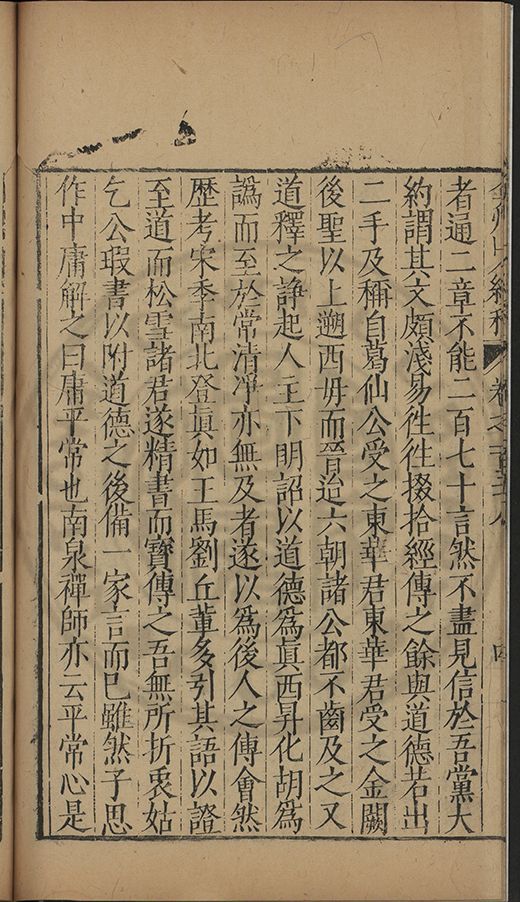 弇州山人續稿 卷之一百五十八 四
者通二章不能二百七十言然不盡見信於吾黨大
約謂其文頗淺易徃徃掇拾經傳之餘與道德若出
二手及稱自葛仙公受之東華君東華君受之金闕
後聖以上遡西毋而晉迨六朝諸公都不齒及之又
道釋之諍起人主下明詔以道德爲眞西昇化胡爲
譌而至於常清凈亦無及者遂以爲後人之傳會然
歷考宋季南北登眞如王馬劉丘輩多引其語以證
至道而松雪諸君遂精書而寶傳之吾無所折衷姑
乞公瑕書以附道德之後備一家言而已雖然子思
作中庸解之曰庸平常也南泉禪師亦云平常心是